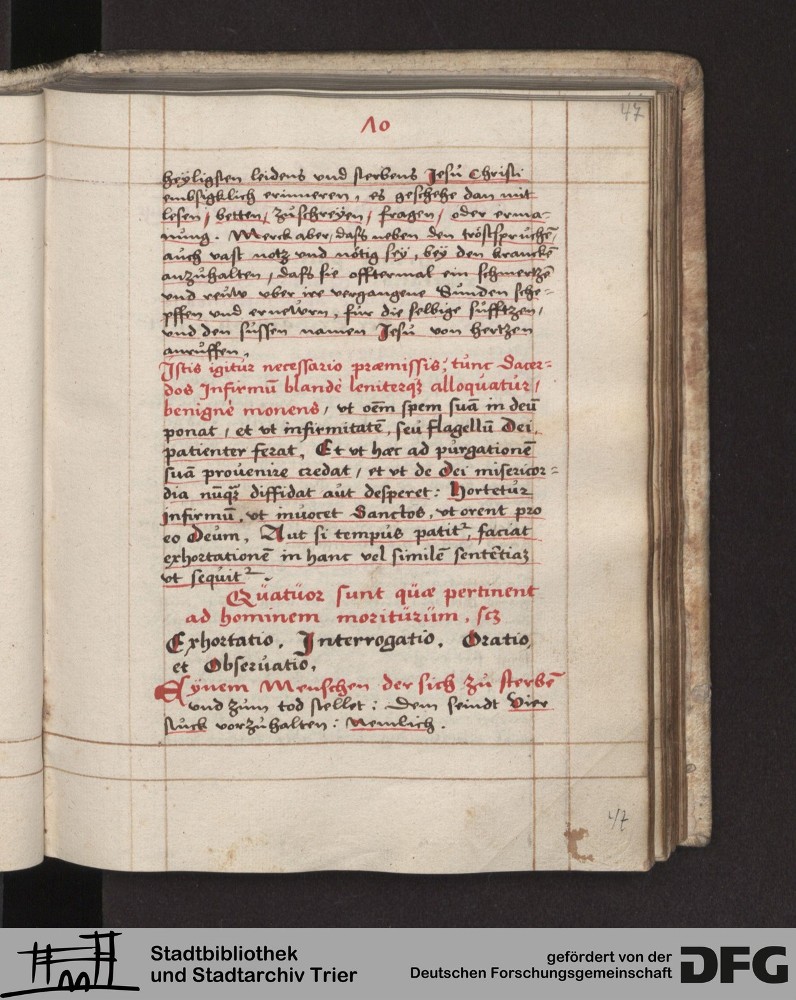 10
47
heÿligsten leidens vnd sterbens Jesu Christi
embsigklich erinneren, es geschehe dan mit
lesen / betten / zuschreÿen / fragen / oder erma-
nung. Merck aber / dasß neben den tröstspruchē /
auch vast notz vnd nötig seÿ, beÿ den kranckē
anzuhalten / dasß sie offtermal ein schmertzē
vnd reuw vber ire vergangene Sunden sche-
pffen vnd ernewrn, für die selbige süfftzen /
vnd den süssen namen Jesu von hertzen
anruffen.
Istis igitur necessario præmissis, tunc Sacer-
dos Infirmū blandè leniterqȝ alloquatur /
benignè monens / vt oēm spem suā in deū
ponat / et vt infirmitatē, seu flagellū Dei,
patienter ferat, Et vt hæc ad purgationē
suā prouenire credat / et vt de Dei misericor-
dia nūqȝ diffidat aut desperet: Hortetur
infirmū, vt inuocet Sanctos, vt orent pro
eo Deum, Aut si tempus patitr, faciat
exhortationē in hanc vel similē sentētiaȝ
vt sequitr.
Quatuor sunt quæ pertinent
ad hominem moriturum, scȝ
Exhortatio, Interrogatio, Oratio,
et Obseruatio.
Eÿnem Menschen der sich zu sterbē
vnd zum tod stellet: Dem seindt Vier
stuck vorzuhalten: Nemlich.
47
Stadtbibliothek
und Stadtarchiv Trier
gefördert von der
Deutschen Forschungsgemeinschaft
DFG